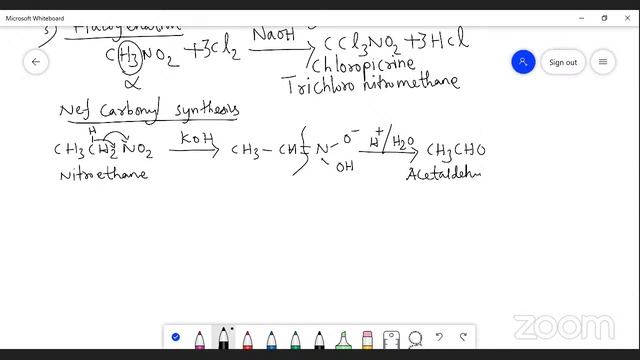 Microsoft Whiteboard
3) Halogenation
CH3NO2 + 3Cl2 NaOH CCl3NO2 + 3HCl
α Chloropicrine
Trichloro nitromethane
Sign out
Nef Carbonyl synthesis
H
CH3CH2NO2 KOH CH3-CH=N O- OH H+/H2O CH3CHO
Nitroethane Acetaldeh
zoom